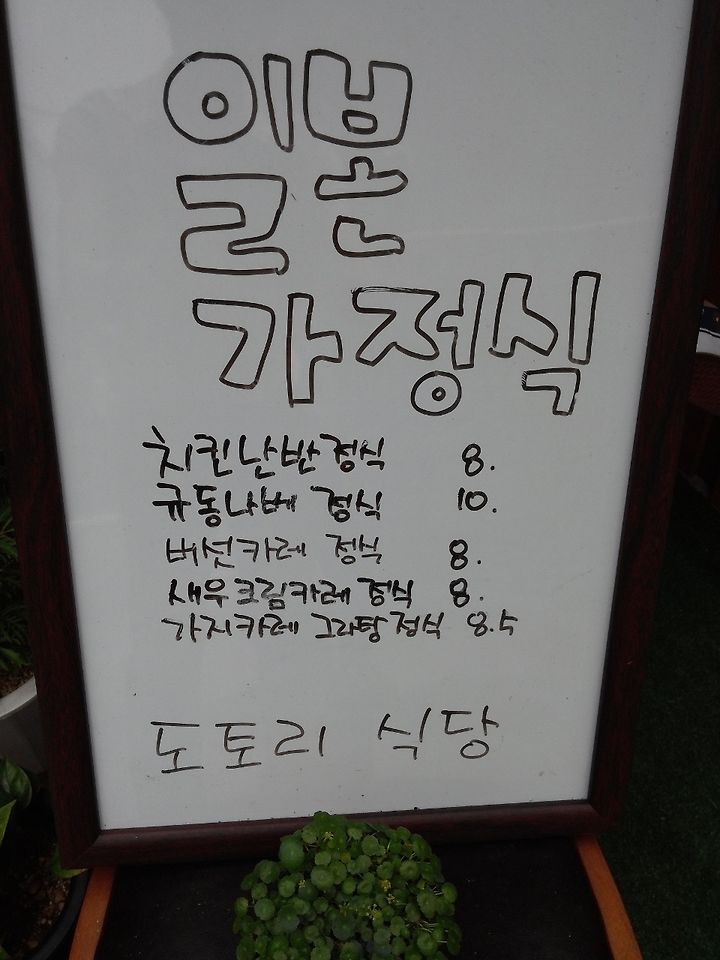 일본
가정식
치킨난반정식 8.
규동나베 정식 10.
버섯카레 정식 8.
새우크림카레정식 8.
가지카레 그라탕정식 8.5
도토리 식당